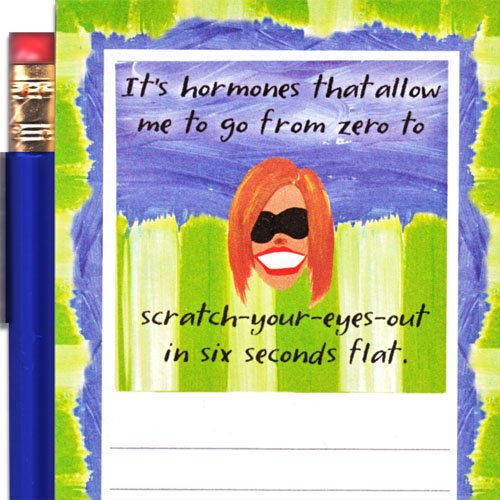 It's hormones that allow
me to go from zero to
scratch-your-eyes-out
in six seconds flat.